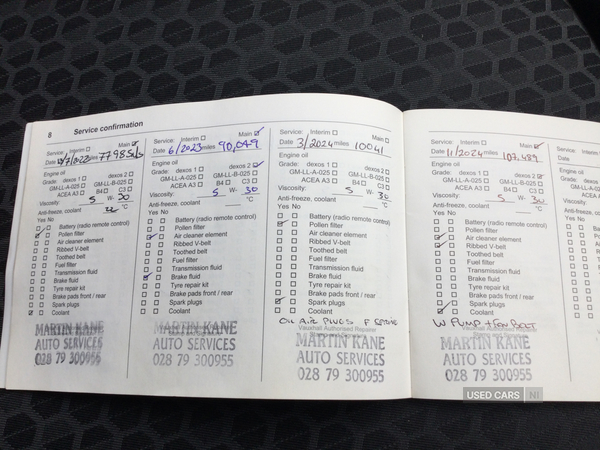 8 Service confirmation
Service: Interim ☐ Main ☑
Date /7/2022 miles
Engine oil
Grade: dexos 1 ☐ dexos 2 ☐
GM-LL-A-025 ☐ GM-LL-B-025 ☐
ACEA A3 ☐ B4 ☐ C3 ☐
Viscosity: 5 W- 30
Anti-freeze, coolant °C
Yes No
Battery (radio remote control)
Pollen filter
Air cleaner element
Ribbed V-belt
Toothed belt
Fuel filter
Transmission fluid
Brake fluid
Tyre repair kit
Brake pads front / rear
Spark plugs
Coolant
MARTIN KANE
AUTO SERVICES
028 79 300955
Service: Interim ☐ Main ☑
Date 6/2023 miles 90,049
Engine oil
Grade: dexos 1 ☐ dexos 2 ☑
GM-LL-A-025 ☐ GM-LL-B-025 ☐
ACEA A3 ☐ B4 ☐ C3 ☐
Viscosity: 5 W- 30
Anti-freeze, coolant °C
Yes No
Battery (radio remote control)
Pollen filter
Air cleaner element
Ribbed V-belt
Toothed belt
Fuel filter
Transmission fluid
Brake fluid
Tyre repair kit
Brake pads front / rear
Spark plugs
Coolant
MARTIN KANE
AUTO SERVICES
028 79 300955
Service: Interim ☐ Main ☑
Date 3/2024 miles 10041
Engine oil
Grade: dexos 1 ☐ dexos 2 ☐
GM-LL-A-025 ☐ GM-LL-B-025 ☐
ACEA A3 ☐ B4 ☐ C3 ☐
Viscosity: 5 W- 30
Anti-freeze, coolant °C
Yes No
Battery (radio remote control)
Pollen filter
Air cleaner element
Ribbed V-belt
Toothed belt
Fuel filter
Transmission fluid
Brake fluid
Tyre repair kit
Brake pads front / rear
Spark plugs
Coolant
OIL AIR PLUGS F
Vauxhall Authorised Repairer
MARTIN KANE
AUTO SERVICES
028 79 300955
Service: Interim ☐ Main ☑
Date 11/2024 miles 107,489
Engine oil
Grade: dexos 1 ☐ dexos 2 ☑
GM-LL-A-025 ☐ GM-LL-B-025 ☐
ACEA A3 ☐ B4 ☐ C3 ☐
Viscosity: 5 W- 30
Anti-freeze, coolant °C
Yes No
Battery (radio remote control)
Pollen filter
Air cleaner element
Ribbed V-belt
Toothed belt
Fuel filter
Transmission fluid
Brake fluid
Tyre repair kit
Brake pads front / rear
Spark plugs
Coolant
W PUMP + FAN BELT
MARTIN KANE
AUTO SERVICES
028 79 300955
Service:
Date
Engine oil
Grade:
Viscosity:
Anti-freeze,
Yes No
USED CARS NI